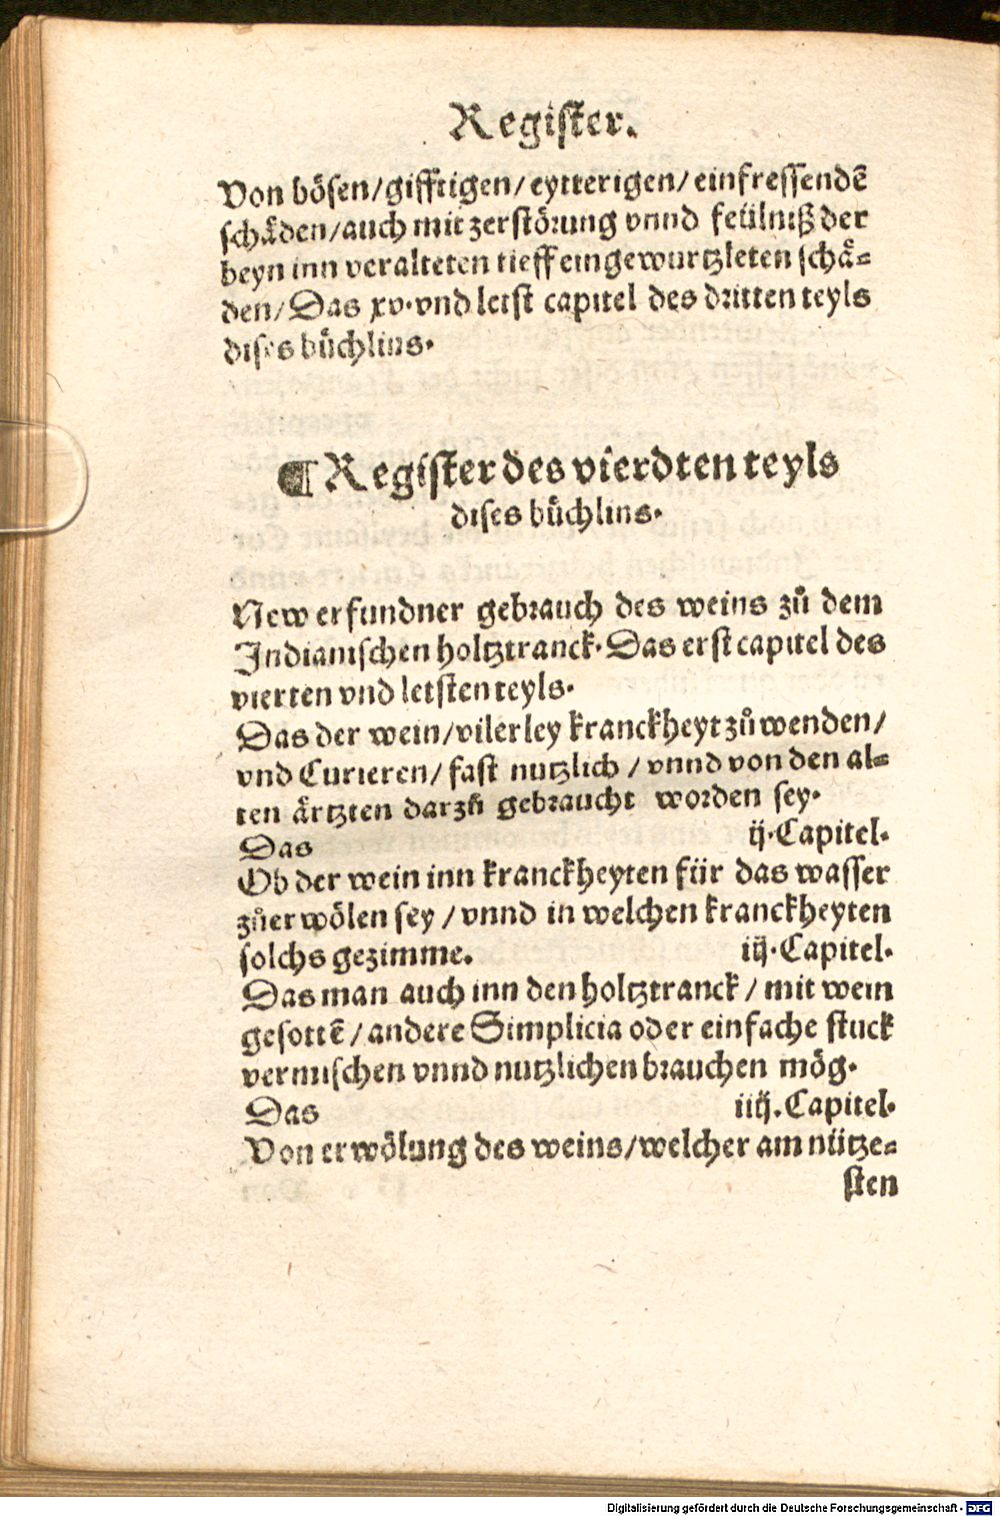 Register.
Von bösen/gifftigen/eytterigen/einfressendẽ
schåden/auch mit zerstörung vnnd feülniß der
beyn inn veralteten tieff eingewurtzleten schå-
den/Das xv.vnd letst capitel des dritten teyls
dises bůchlins.
¶Register des vierdten teyls
dises bůchlins.
New erfundner gebrauch des weins zů dem
Indianischen holtztranck.Das erst capitel des
vierten vnd letsten teyls.
Das der wein/vilerley kranckheyt zůwenden/
vnd Curieren/fast nutzlich/vnnd von den al-
ten årtzten darzů gebraucht worden sey.
Das ij.Capitel.
Ob der wein inn kranckheyten für das wasser
zůerwölen sey/vnnd in welchen kranckheyten
solchs gezimme. iij.Capitel.
Das man auch inn den holtztranck/mit wein
gesottẽ/andere Simplicia oder einfache stuck
vermischen vnnd nutzlichen brauchen mög.
Das iiij.Capitel.
Von erwölung des weins/welcher am nütze-
sten
Digitalisierung gefördert durch die Deutsche Forschungsgemeinschaft - DFG